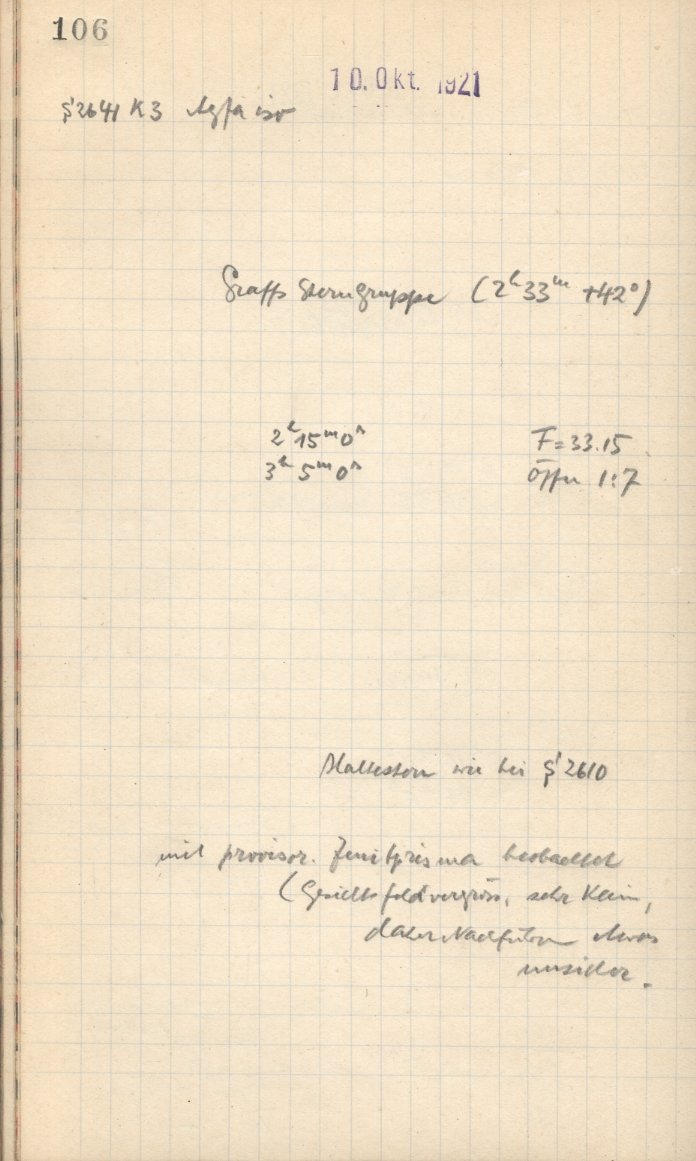 106
10. Okt. 1921
§2641 K3 Agfa iso
Graffs Sterngruppe (2ʰ33ᵐ +42°)
2ʰ15ᵐ0ˢ F=33.15
3ʰ5ᵐ0ˢ Öffn 1:7
Haltestern wie bei §2610
mit provisor. Zenitprisma beobachtet
(Gesichtsfeldvergröss, sehr klein,
daher Nachführen etwas
unsicher.